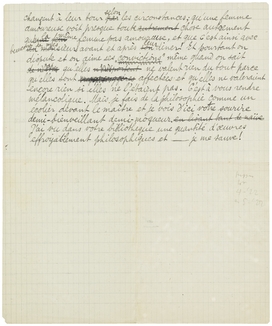 changent à leur tour selon les circonstances, qu'une femme
amoureuse voit presque toute chose autrement
que la même femme pas amoureuse, et que c'est ainsi avec
avant et après Et pourtant on
discute et on aime ses "convictions" même quand on sait
qu'elles ne valent rien du tout parce
qu'elles sont affectées et qu'elles ne vaudraient
encore rien si elles ne l'étaient pas. C'est à vous rendre
mélancolique. Mais je fais de la philosophie comme un
écolier devant le maître et je vois d'ici votre sourire
demi-bienveillant demi-moqueur
J'ai vu dans votre bibliothèque une quantité d'œuvres
effroyablement philosophiques et — je me sauve!